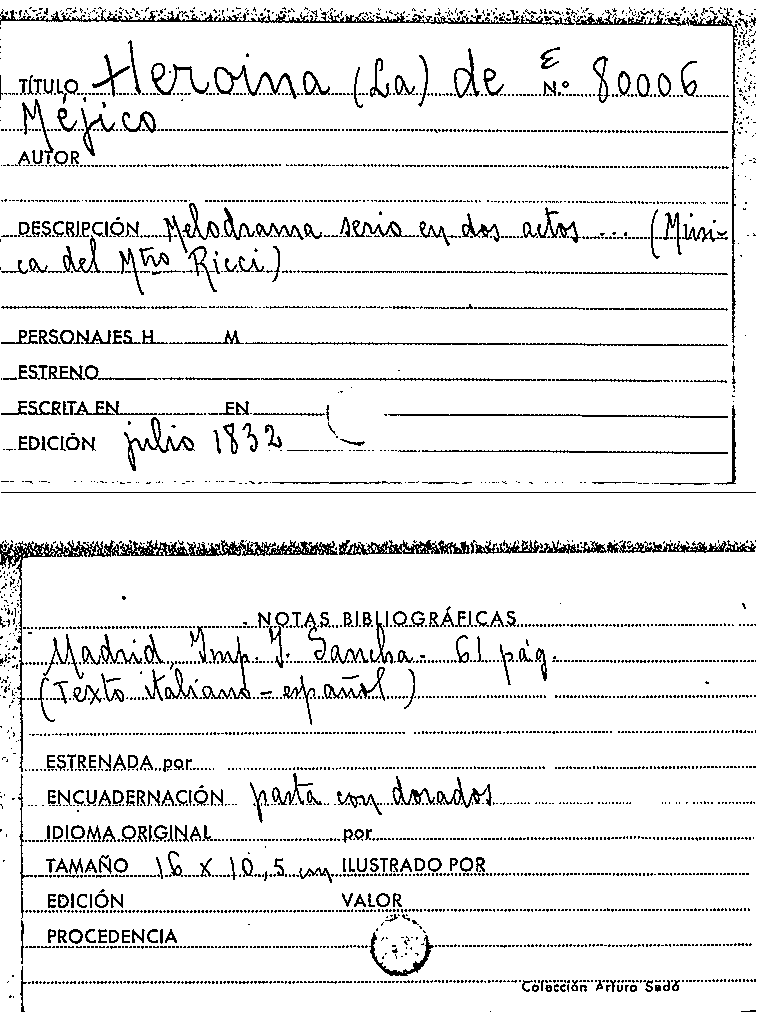 TÍTULO Heroina (La) de E Nº 80006
Méjico
AUTOR
DESCRIPCIÓN Melodrama serio en dos actos ... (Músi-
ca del Mtro Ricci)
PERSONAJES H M
ESTRENO
ESCRITA EN EN
EDICIÓN julio 1832
NOTAS BIBLIOGRÁFICAS
Madrid, Imp. J. Sancha - 61 pág.
(Texto italiano - español)
ESTRENADA por
ENCUADERNACIÓN pasta con dorados
IDIOMA ORIGINAL por
TAMAÑO 16 x 10,5 cm ILUSTRADO POR
EDICIÓN VALOR
PROCEDENCIA
Colección Arturo Sedó